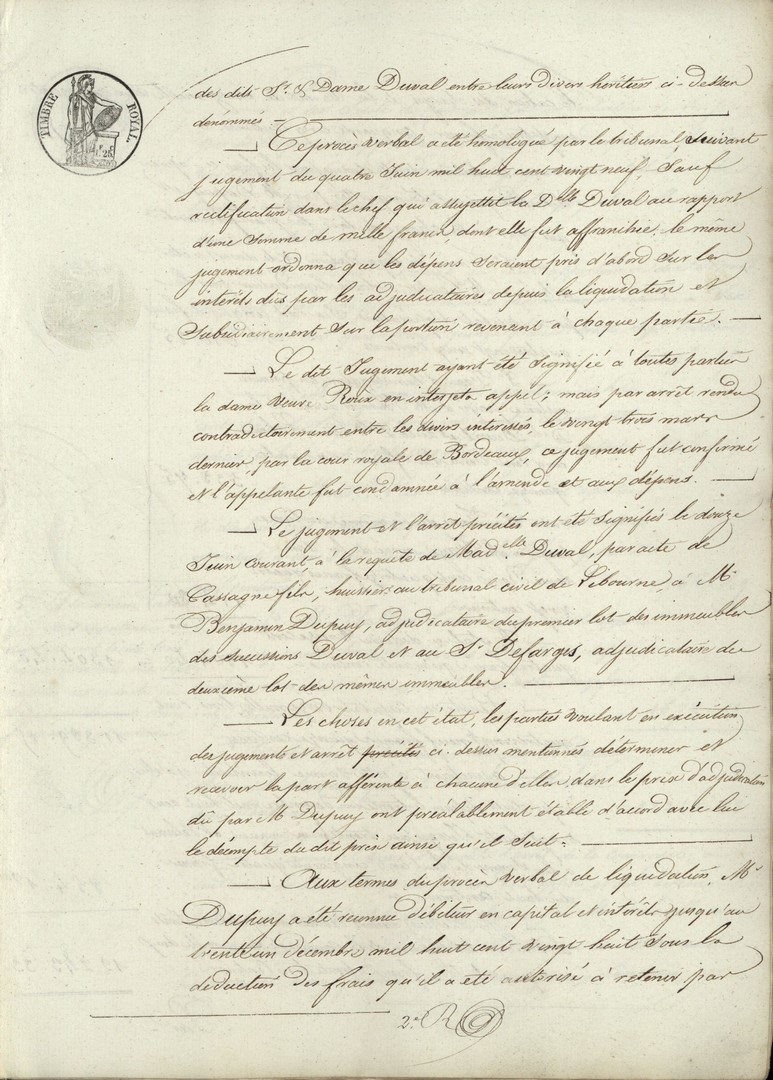 TIMBRE ROYAL.
des dits Sr. & Dame Duval entre leurs divers héritiers ci-dessus
dénommés
Ce procès verbal a été homologué par le tribunal, suivant
jugement du quatre Juin mil huit cent vingt neuf, Sauf
rectification dans le chef qui assujettit la Dlle Duval au rapport
d'une somme de mille francs, dont elle fut affranchie. le même
jugement ordonna que les dépens seraient pris d'abord sur les
intérêts dus par les adjudicataires depuis la liquidation et
Subsidiairement sur la portion revenant à chaque partie.
Le dit Jugement ayant été signifié à toutes parties
la dame Veuve Roux en interjeta appel; mais par arrêt rendu
contradictoirement entre les divers intéressés, le vingt trois mars
dernier, par la cour royale de Bordeaux, ce jugement fut confirmé
et l'appelante fut condamnée à l'amende et aux dépens.
Le jugement et l'arrêt précités ont été signifiés le douze
Juin courant, à la requête de Madelle. Duval, par acte de
Cassagne fils, huissier au tribunal civil de Libourne, à M
Benjamin Dupuy, adjudicataire du premier lot des immeubles
des successions Duval et au Sr Defarges, adjudicataire du
deuxième lot des mêmes immeubles.
Les choses en cet état, les parties voulant en exécution
des jugements et arrêt précités ci-dessus mentionnés déterminer et
recevoir la part afférente à chacune d'elles, dans le prix d'adjudication
dû par M Dupuy ont préalablement établi d'accord avec lui
le décompte du dit prix ainsi qu'il suit.
Aux termes du procès verbal de liquidation, Mr
Dupuy a été reconnu débiteur en capital et intérêts jusqu'au
trente un décembre mil huit cent vingt huit sous la
déduction des frais qu'il a été autorisé à retenir par
2e R